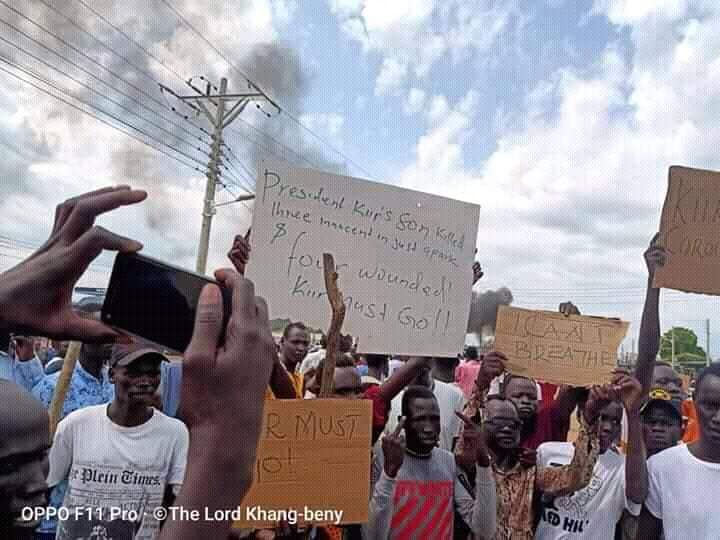 President Kiir's Son Killed
three innocent in just a park
& four wounded!
Kiir must Go!!
I CAN'T
BREATHE
KII
R MUST
O!
Plein Times.
RED HILL
OPPO F11 Pro · ©The Lord Khang-beny